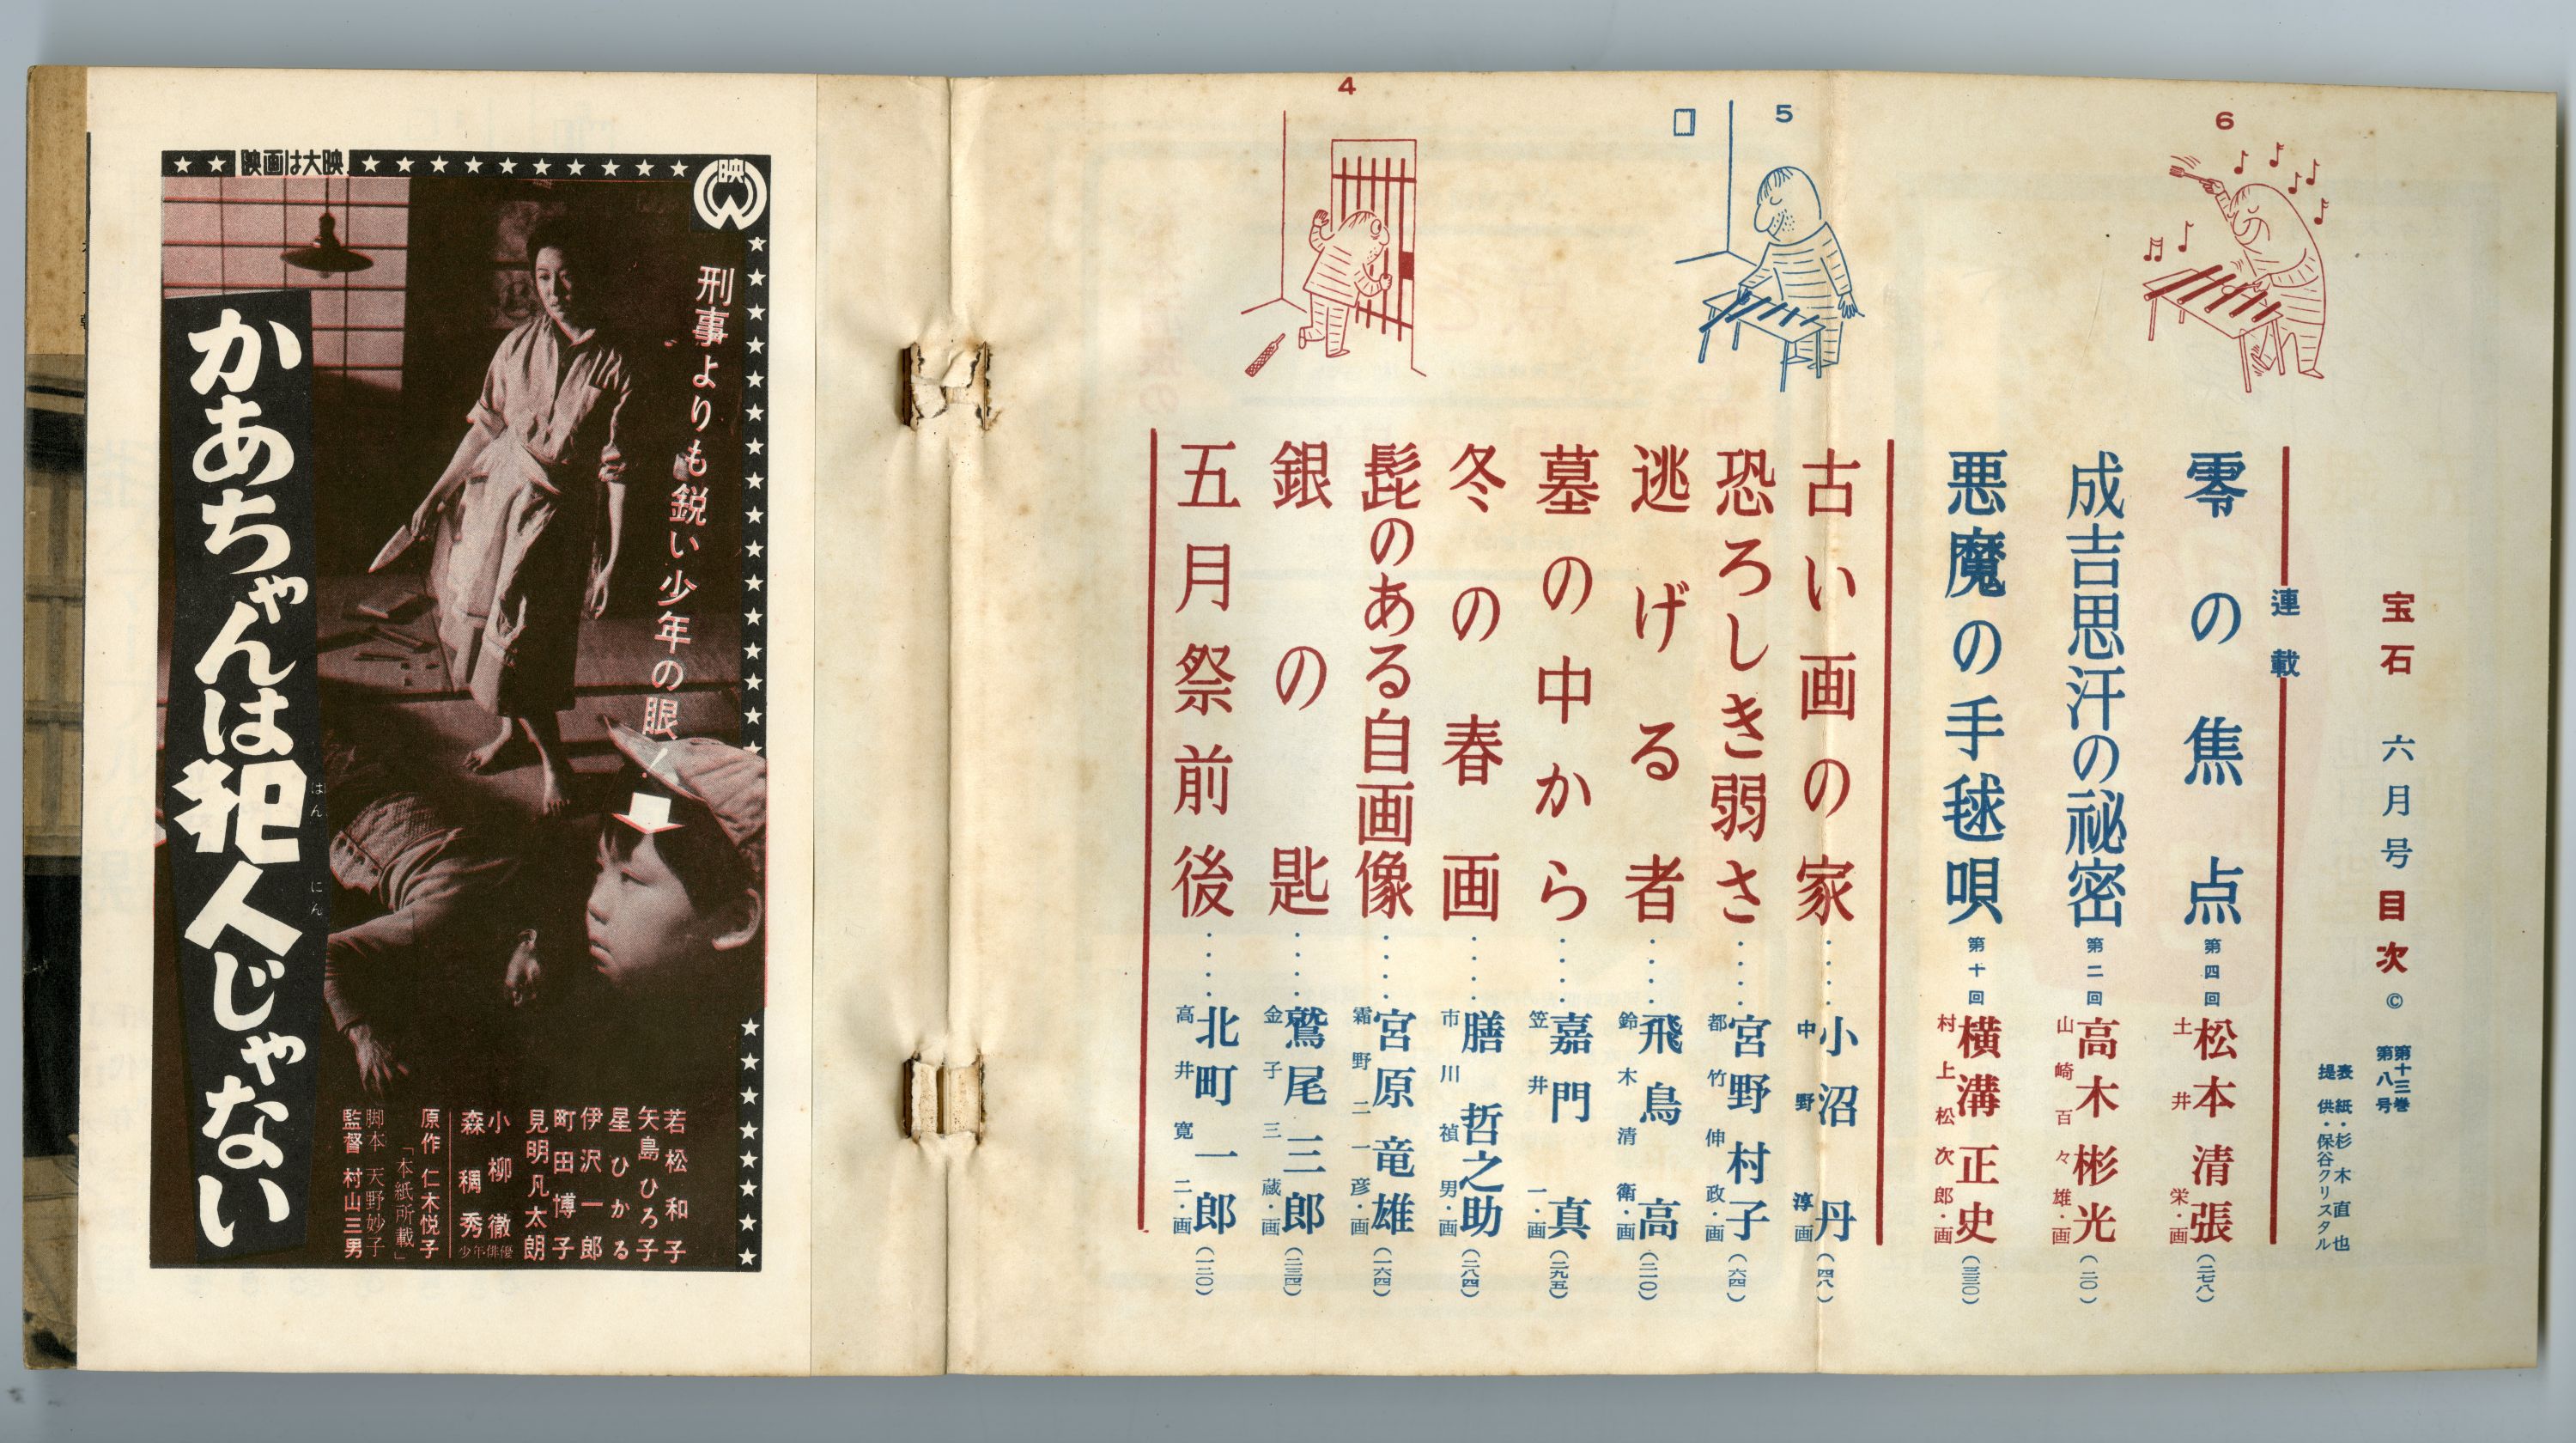 宝石 六月号 目次 ©
第十三巻
第八号
表紙・杉木直也
提供・保谷クリスタル
連載
零の焦点 第四回 松本清張 土井栄・画 (二七八)
成吉思汗の秘密 第二回 高木彬光 山崎百々雄・画 (二〇)
悪魔の手毬唄 第十回 横溝正史 村上松次郎・画 (三三〇)
古い画の家‥‥小沼丹 中野淳画 (四八)
恐ろしき弱さ‥‥宮野村子 都竹伸政・画 (六四)
逃げる者‥‥飛鳥高 鈴木清衛・画 (二一〇)
墓の中から‥‥嘉門真 笠井一・画 (二九五)
冬の春画‥‥膳哲之助 市川禎男・画 (二八四)
髭のある自画像‥‥宮原竜雄 霜野二一彦・画 (一六四)
銀の匙‥‥鷲尾三郎 金子三蔵・画 (二三四)
五月祭前後‥‥北町一郎 高井寛二・画 (一二〇)
6
5
4
映画は大映
映
刑事よりも鋭い少年の眼!
かあちゃんは犯人じゃない
はんにん
若松和子
矢島ひろ子
星ひかる
伊沢一郎
町田博子
見明凡太朗
小柳徹
森稠秀
少年俳優
原作 仁木悦子
「本紙所載」
脚本 天野妙子
監督 村山三男